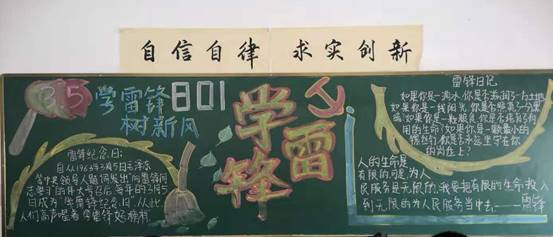 自信自律 求实创新
3.5
学雷锋
树新风
801
学雷锋
雷锋纪念日:
自从1963年3月5日毛泽东
等中央领导人题词发出"向雷锋同
志学习"的伟大号召后,每年的3月5
日成为"学雷锋纪念日",从此
人们高声唱着学雷锋
雷锋日记
如果你是一滴水,你是否滋润了一寸土地
如果你是一线阳光,你是否照亮了一分黑
暗?如果你是一粒粮食,你是否哺育了有
用的生命?如果你是一颗最小的
螺丝钉,你是否永远坚守在你
的岗位上?
人的生命是
有限的,可是,为人
民服务是无限的,我要把有限的生命,投入
到无限的为人民服务当中去。——雷锋